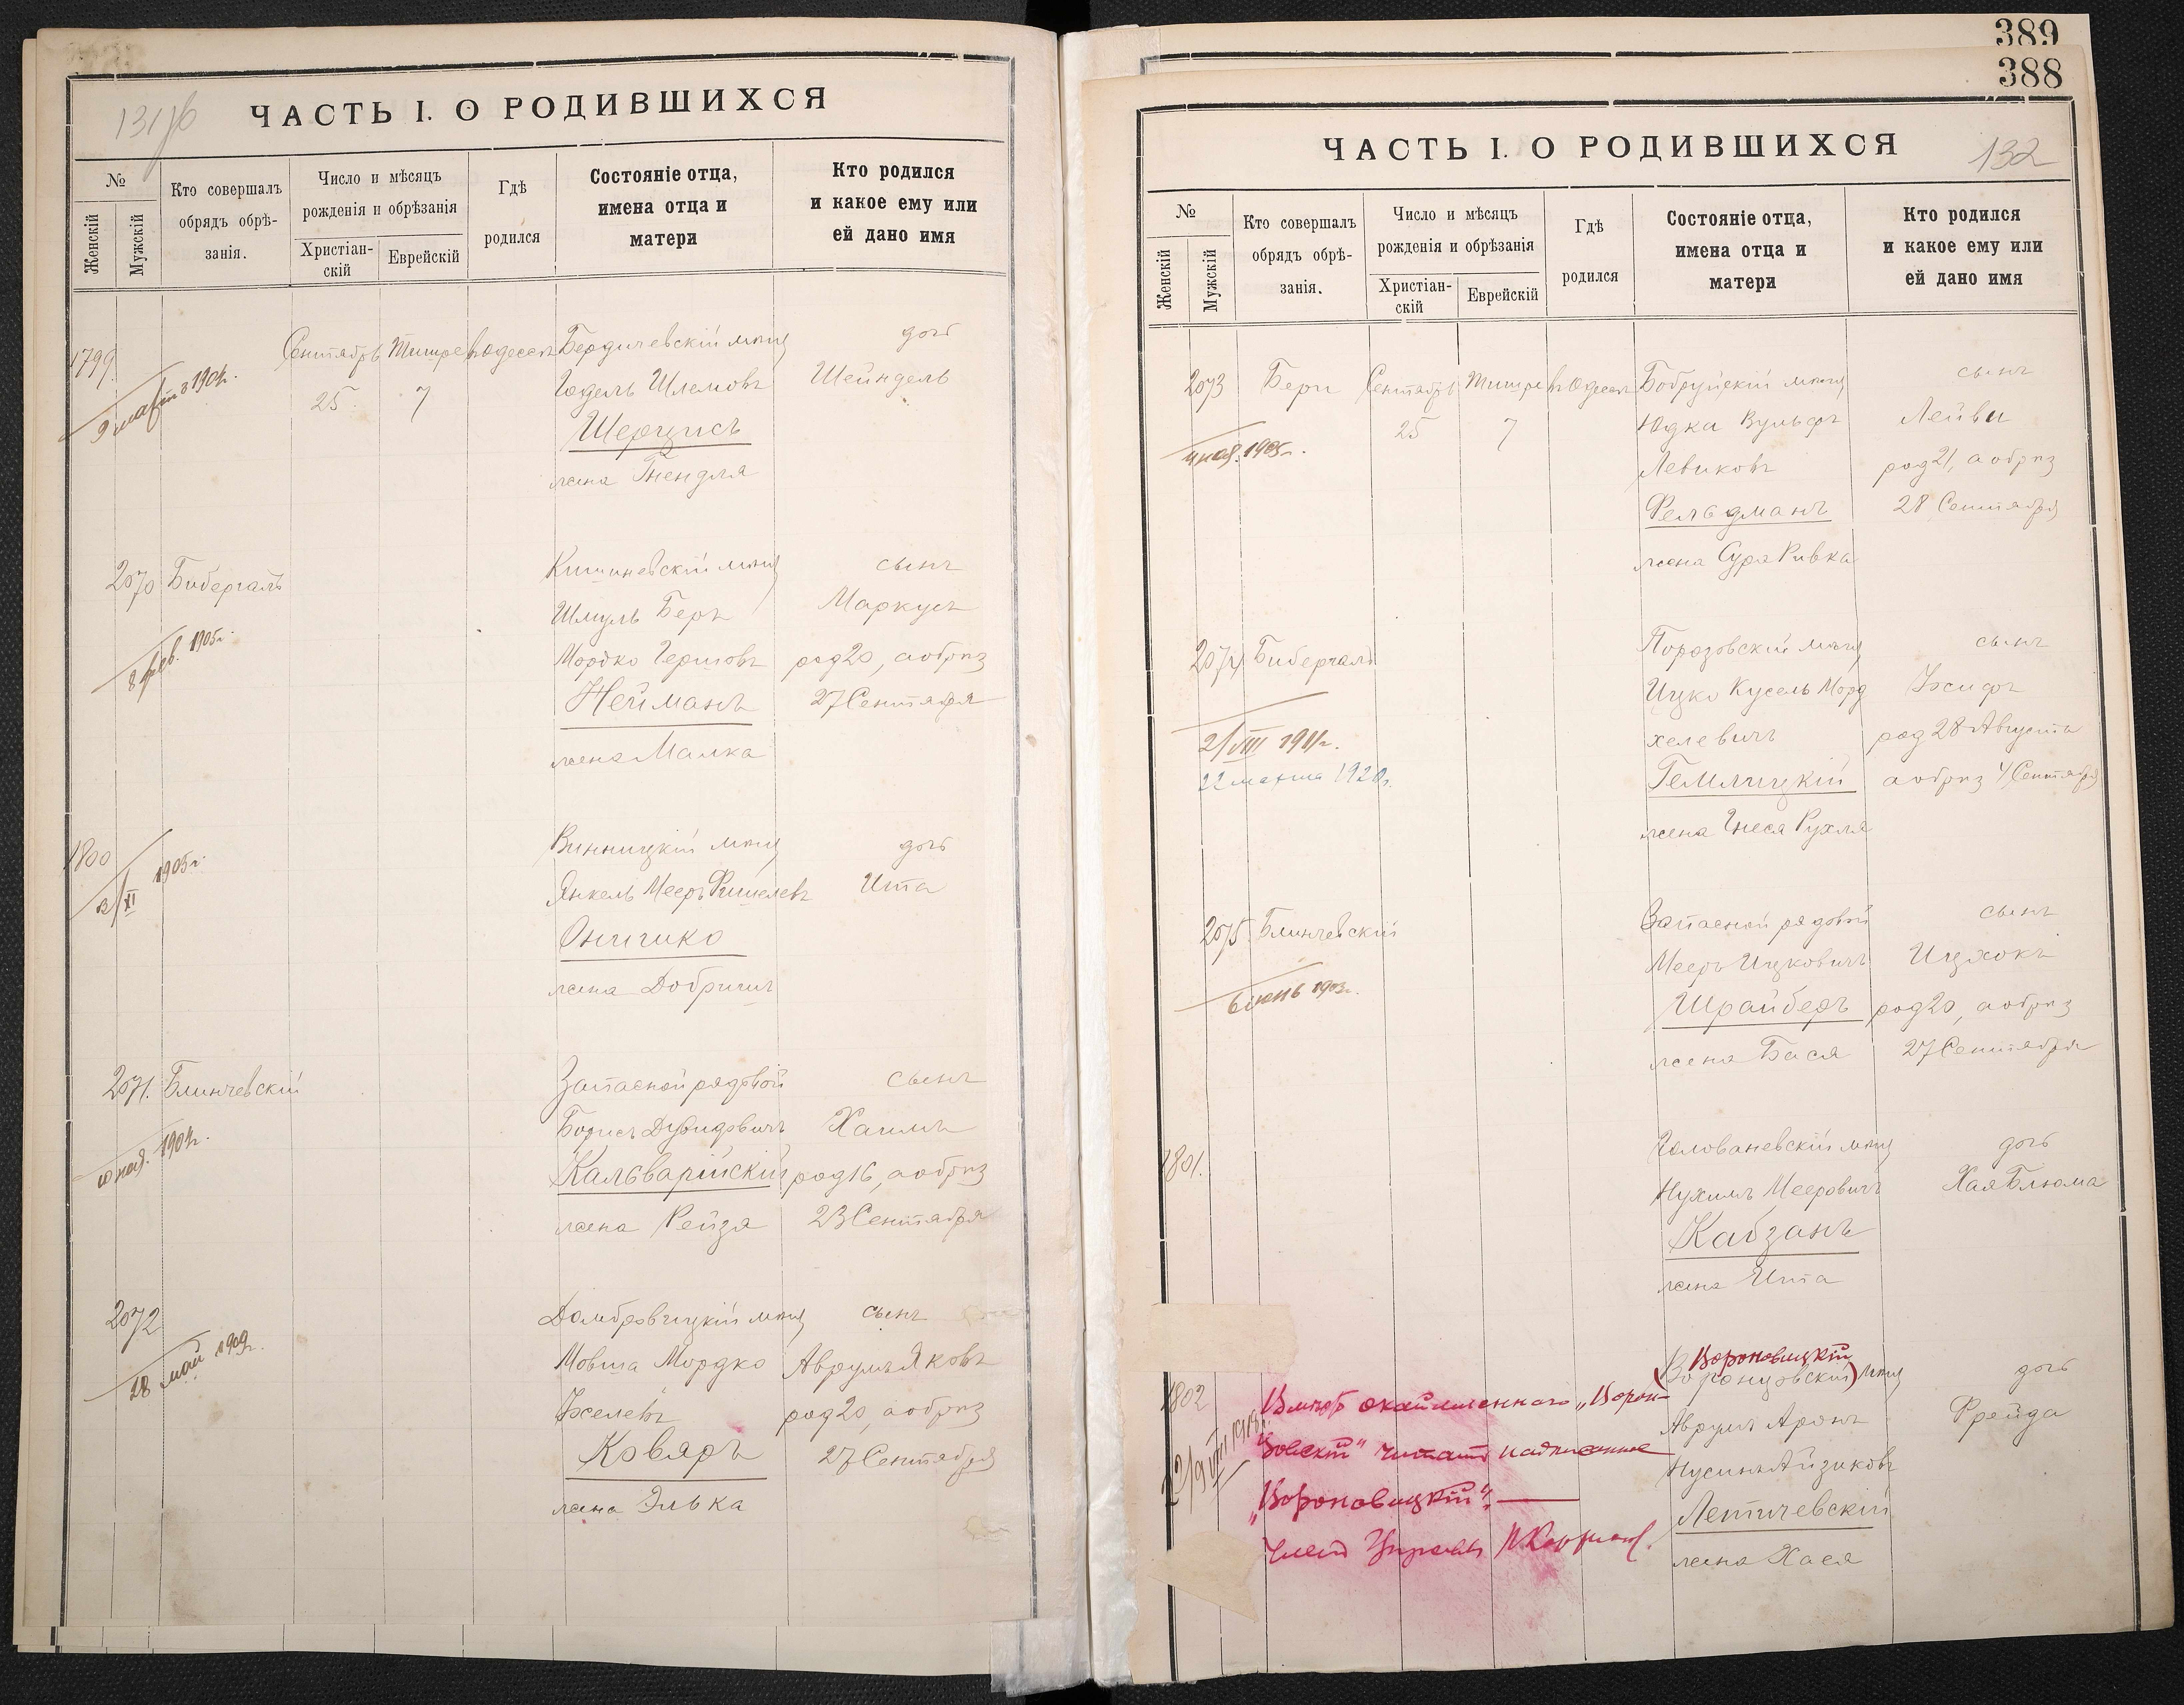 131 об
ЧАСТЬ I. О РОДИВШИХСЯ
№
Женскій
Мужскій
Кто совершалъ
обрядъ обрѣ-
занія.
Число и мѣсяцъ
рожденія и обрѣзанія
Христіан-
скій
Еврейскій
Гдѣ
родился
Состояніе отца,
имена отца и
матери
Кто родился
и какое ему или
ей дано имя
1799
9 марта 1904г.
Сентябрь
25
Тишре
7
въ Одессѣ
Бердичевскій мѣщ
Годель Шлемовъ
жена Гнендля
дочь
Шейндель
2070
Биберталь
8 фев. 1905г.
Кишиневскій мѣщ
Шмуль Беръ
Мордко Гершовъ
Нейманъ
жена Малка
сынъ
Маркусъ
род 20, а обрѣз
27 Сентября
1800
XI 1905г.
Винницкій мѣщ
Янкель Мееръ Фишелевъ
Оничко
жена
дочь
Ита
2071.
Блинчевскій
10 ноя. 1904г.
Запасной рядовой
Борисъ Дувидовичъ
Кальварійскій
жена Рейзя
сынъ
Хаимъ
род 16, а обрѣз
23 Сентября
2072
18 май 1909г.
Домбровицкій мѣщ
Мовша Мордко
Іоселевъ
Коваръ
жена Элька
сынъ
Аврумъ Яковъ
род 20, а обрѣз
27 Сентября
389
388
ЧАСТЬ I. О РОДИВШИХСЯ
132
№
Женскій
Мужскій
Кто совершалъ
обрядъ обрѣ-
занія.
Число и мѣсяцъ
рожденія и обрѣзанія
Христіан-
скій
Еврейскій
Гдѣ
родился
Состояніе отца,
имена отца и
матери
Кто родился
и какое ему или
ей дано имя
2073
4 ноя. 1905г.
Сентябрь
25
Тишре
7
въ Одессѣ
Бобруйскій мѣщ
Юдка Вульфъ
Левиковъ
Фельдманъ
жена Сура Ривка
сынъ
Лейви
род 21, а обрѣз
28 Сентября
2074
Биберталь
2/VIII 1911г.
22 марта 1920г.
Порозовскій мѣщ
Ицко Кусель Морд
хелевичъ
жена Гнеся Рухля
сынъ
Іосифъ
род 28 Августа
а обрѣз 4 Сентября
2075
Блинчевскій
6 июнь 1903г.
Запасной рядовой
Мееръ Ицковичъ
Шрайберъ
жена Бася
сынъ
Ицхокъ
род 20, а обрѣз
27 Сентября
1801.
Голованевскій мѣщ
Нухимъ Мееровичъ
Кабзанъ
жена Ита
дочь
Хая Блюма
1802
Вмѣсто окаймленнаго „Ворон-
цовскій" читать надписанное
„Вороновицкій".
Членъ Управы
Вороновицкій
(Воронцовскій) мѣщ
Аврумъ Аронъ
Нусинъ Айзиковъ
Летичевскій
жена Хася
дочь
Фрейда